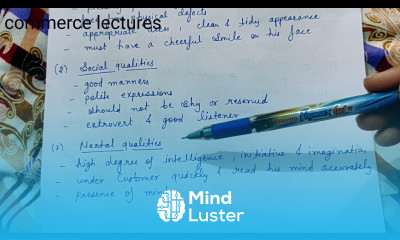 physical defects
commerce lectures
appropriate dress, clean & tidy appearance
- must have a cheerful smile on his face
(2) Social qualities
- good manners
- polite expressions
- should not be shy or reserved
- extrovert & good listener
(3) Mental qualities
- high degree of intelligence, initiative & imagination
- under customer quickly & read his mind accurately
- presence of mind
Mind
Luster